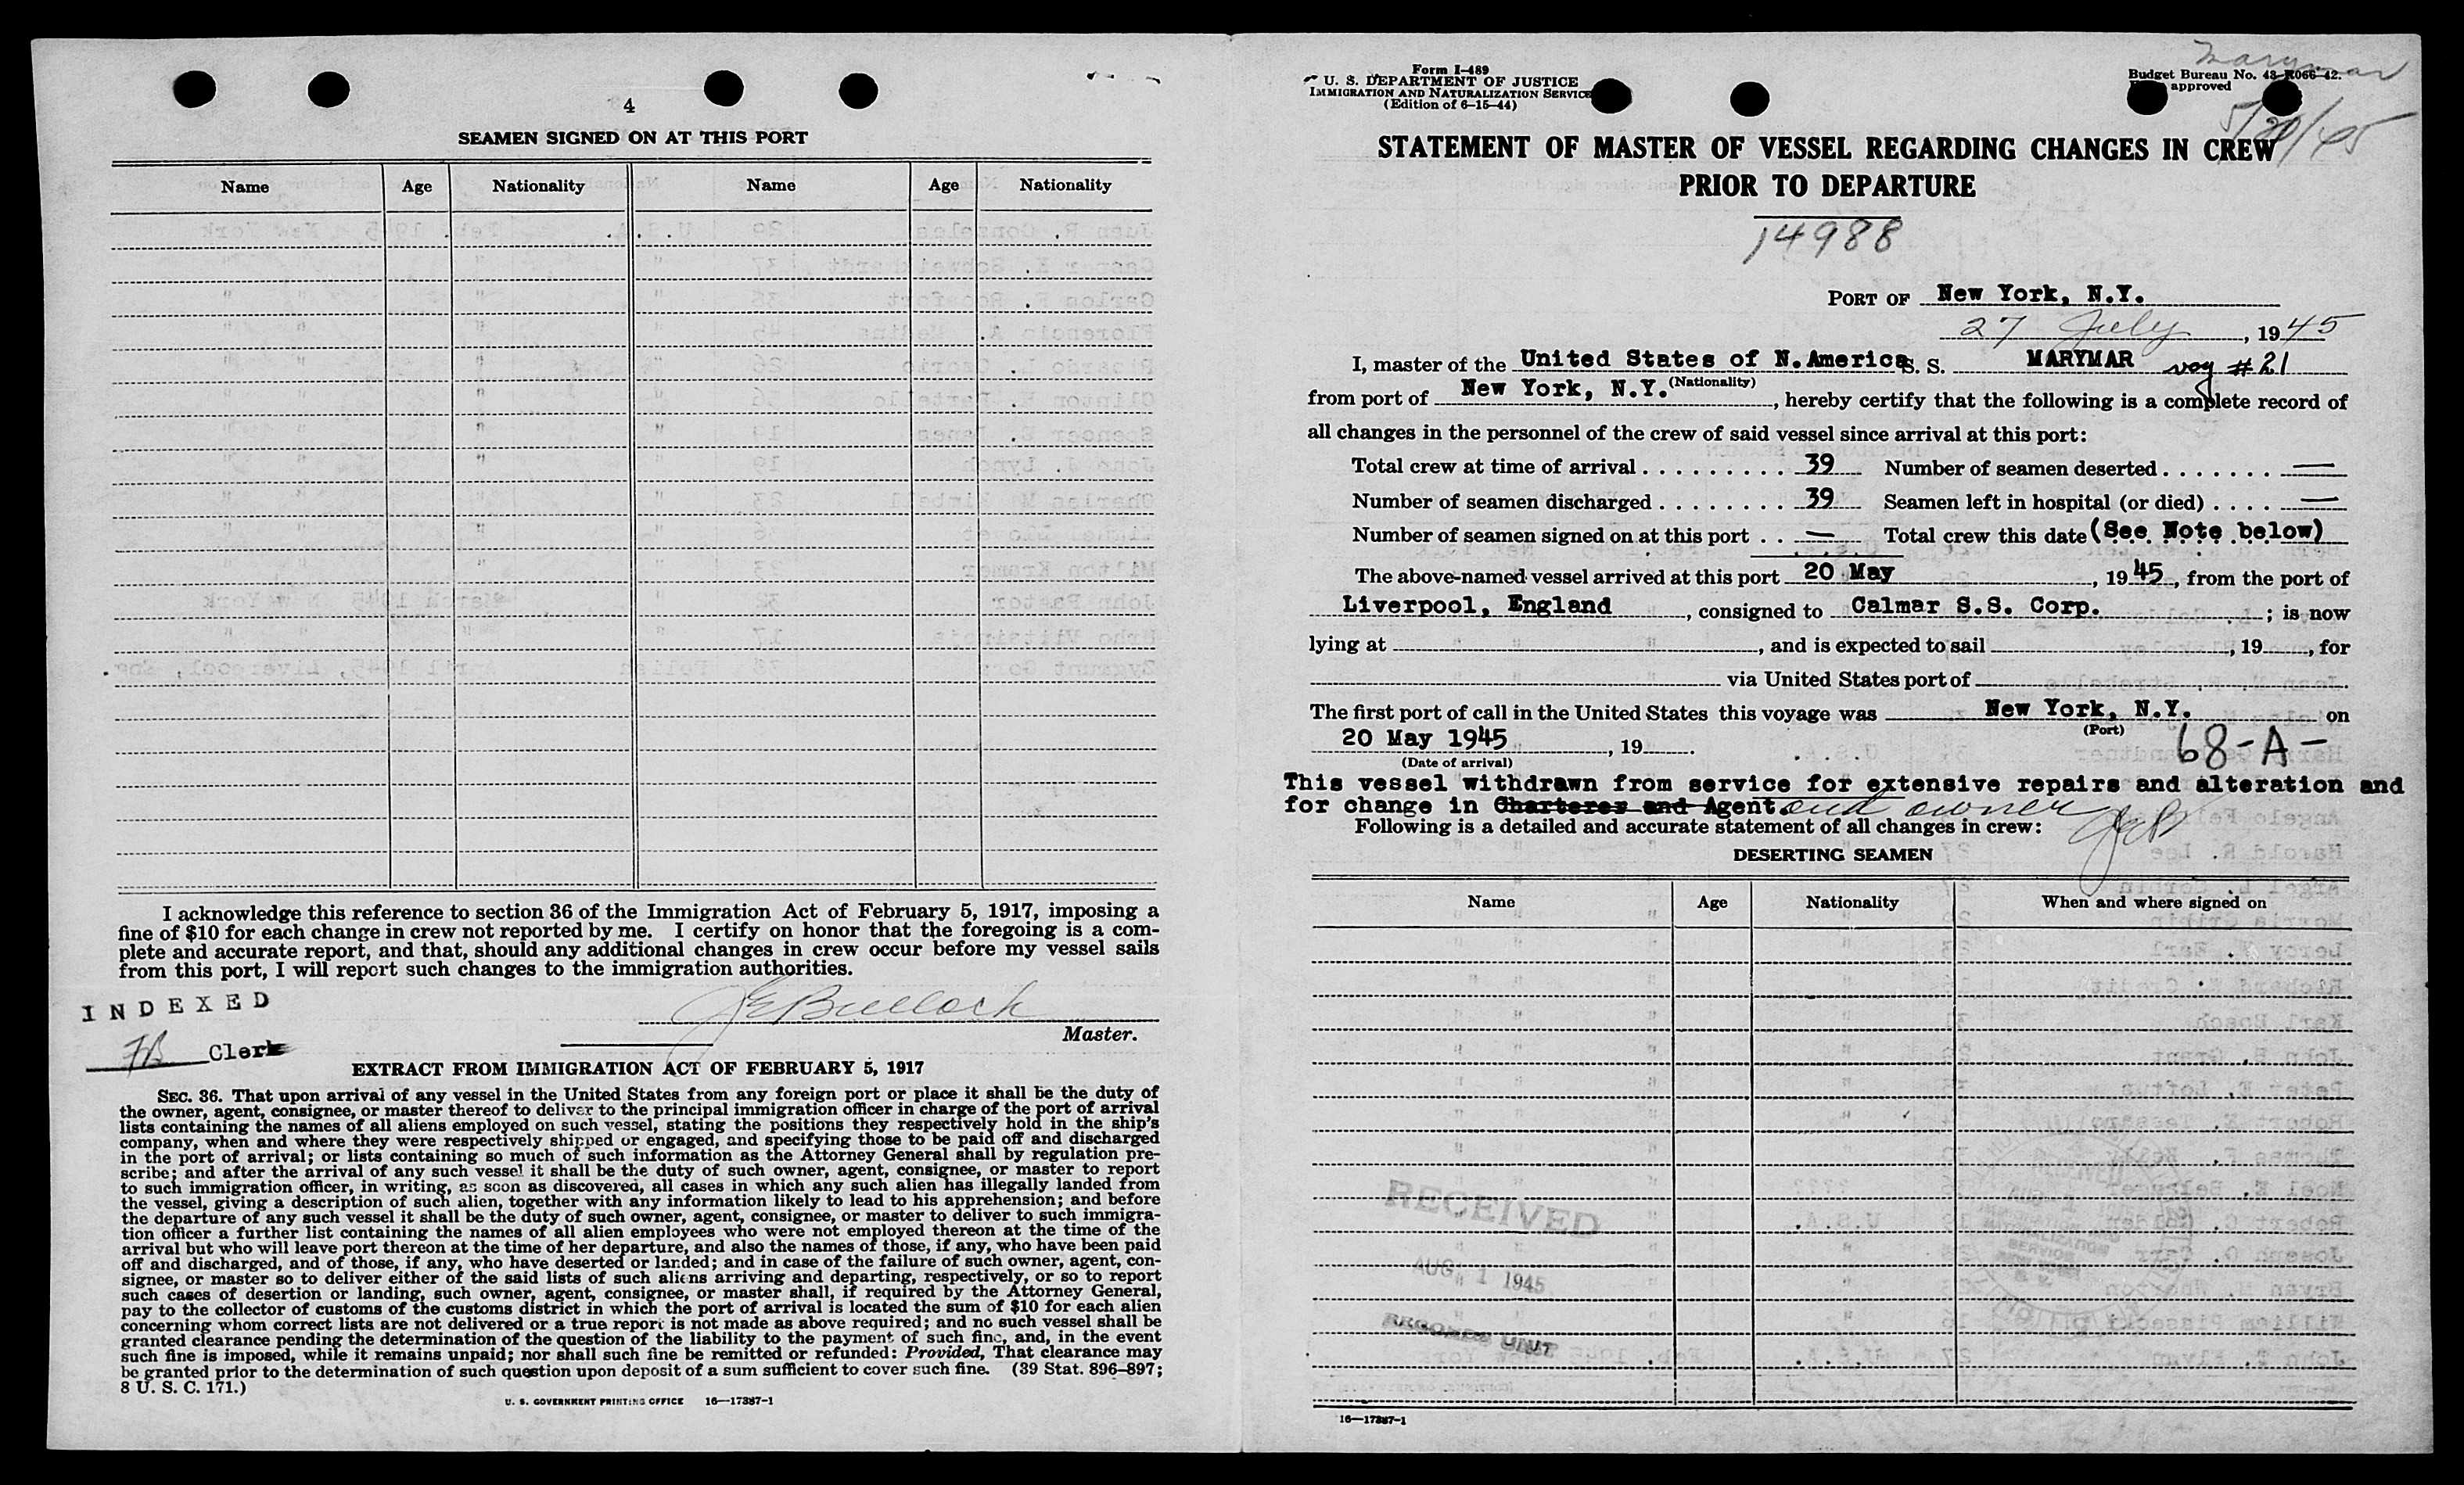 4
SEAMEN SIGNED ON AT THIS PORT
Name Age Nationality Name Age Nationality
I acknowledge this reference to section 36 of the Immigration Act of February 5, 1917, imposing a
fine of $10 for each change in crew not reported by me. I certify on honor that the foregoing is a com-
plete and accurate report, and that, should any additional changes in crew occur before my vessel sails
from this port, I will report such changes to the immigration authorities.
INDEXED
JEBulloch
Master.
FB Clerk
EXTRACT FROM IMMIGRATION ACT OF FEBRUARY 5, 1917
SEC. 36. That upon arrival of any vessel in the United States from any foreign port or place it shall be the duty of
the owner, agent, consignee, or master thereof to deliver to the principal immigration officer in charge of the port of arrival
lists containing the names of all aliens employed on such vessel, stating the positions they respectively hold in the ship's
company, when and where they were respectively shipped or engaged, and specifying those to be paid off and discharged
in the port of arrival; or lists containing so much of such information as the Attorney General shall by regulation pre-
scribe; and after the arrival of any such vessel it shall be the duty of such owner, agent, consignee, or master to report
to such immigration officer, in writing, as soon as discovered, all cases in which any such alien has illegally landed from
the vessel, giving a description of such alien, together with any information likely to lead to his apprehension; and before
the departure of any such vessel it shall be the duty of such owner, agent, consignee, or master to deliver to such immigra-
tion officer a further list containing the names of all alien employees who were not employed thereon at the time of the
arrival but who will leave port thereon at the time of her departure, and also the names of those, if any, who have been paid
off and discharged, and of those, if any, who have deserted or landed; and in case of the failure of such owner, agent, con-
signee, or master so to deliver either of the said lists of such aliens arriving and departing, respectively, or so to report
such cases of desertion or landing, such owner, agent, consignee, or master shall, if required by the Attorney General,
pay to the collector of customs of the customs district in which the port of arrival is located the sum of $10 for each alien
concerning whom correct lists are not delivered or a true report is not made as above required; and no such vessel shall be
granted clearance pending the determination of the question of the liability to the payment of such fine, and, in the event
such fine is imposed, while it remains unpaid; nor shall such fine be remitted or refunded: Provided, That clearance may
be granted prior to the determination of such question upon deposit of a sum sufficient to cover such fine. (39 Stat. 896–897;
8 U. S. C. 171.)
U. S. GOVERNMENT PRINTING OFFICE 16—17387-1
Form I-489
U. S. DEPARTMENT OF JUSTICE
IMMIGRATION AND NATURALIZATION SERVICE
(Edition of 6-15-44)
Marymar
Budget Bureau No. 43-R066-42.
approved
5/20/45
STATEMENT OF MASTER OF VESSEL REGARDING CHANGES IN CREW
PRIOR TO DEPARTURE
14988
PORT OF New York, N.Y.
27 July, 1945
I, master of the United States of N.America S. S. MARYMAR voy #21
(Nationality)
from port of New York, N.Y., hereby certify that the following is a complete record of
all changes in the personnel of the crew of said vessel since arrival at this port:
Total crew at time of arrival . . . . . . . . . . 39 Number of seamen deserted . . . . . . . —
Number of seamen discharged . . . . . . . . 39 Seamen left in hospital (or died) . . . . —
Number of seamen signed on at this port . . — Total crew this date (See Note below)
The above-named vessel arrived at this port 20 May, 1945, from the port of
Liverpool, England, consigned to Calmar S.S. Corp.; is now
lying at , and is expected to sail , 19 , for
via United States port of
The first port of call in the United States this voyage was New York, N.Y. on
(Port)
20 May 1945, 19 .
(Date of arrival)
68-A-
This vessel withdrawn from service for extensive repairs and alteration and
for change in Charterer and Agent. and owner
Following is a detailed and accurate statement of all changes in crew:
DESERTING SEAMEN
Name Age Nationality When and where signed on
RECEIVED
AUG 1 1945
RECORDS UNIT
16—17387-1